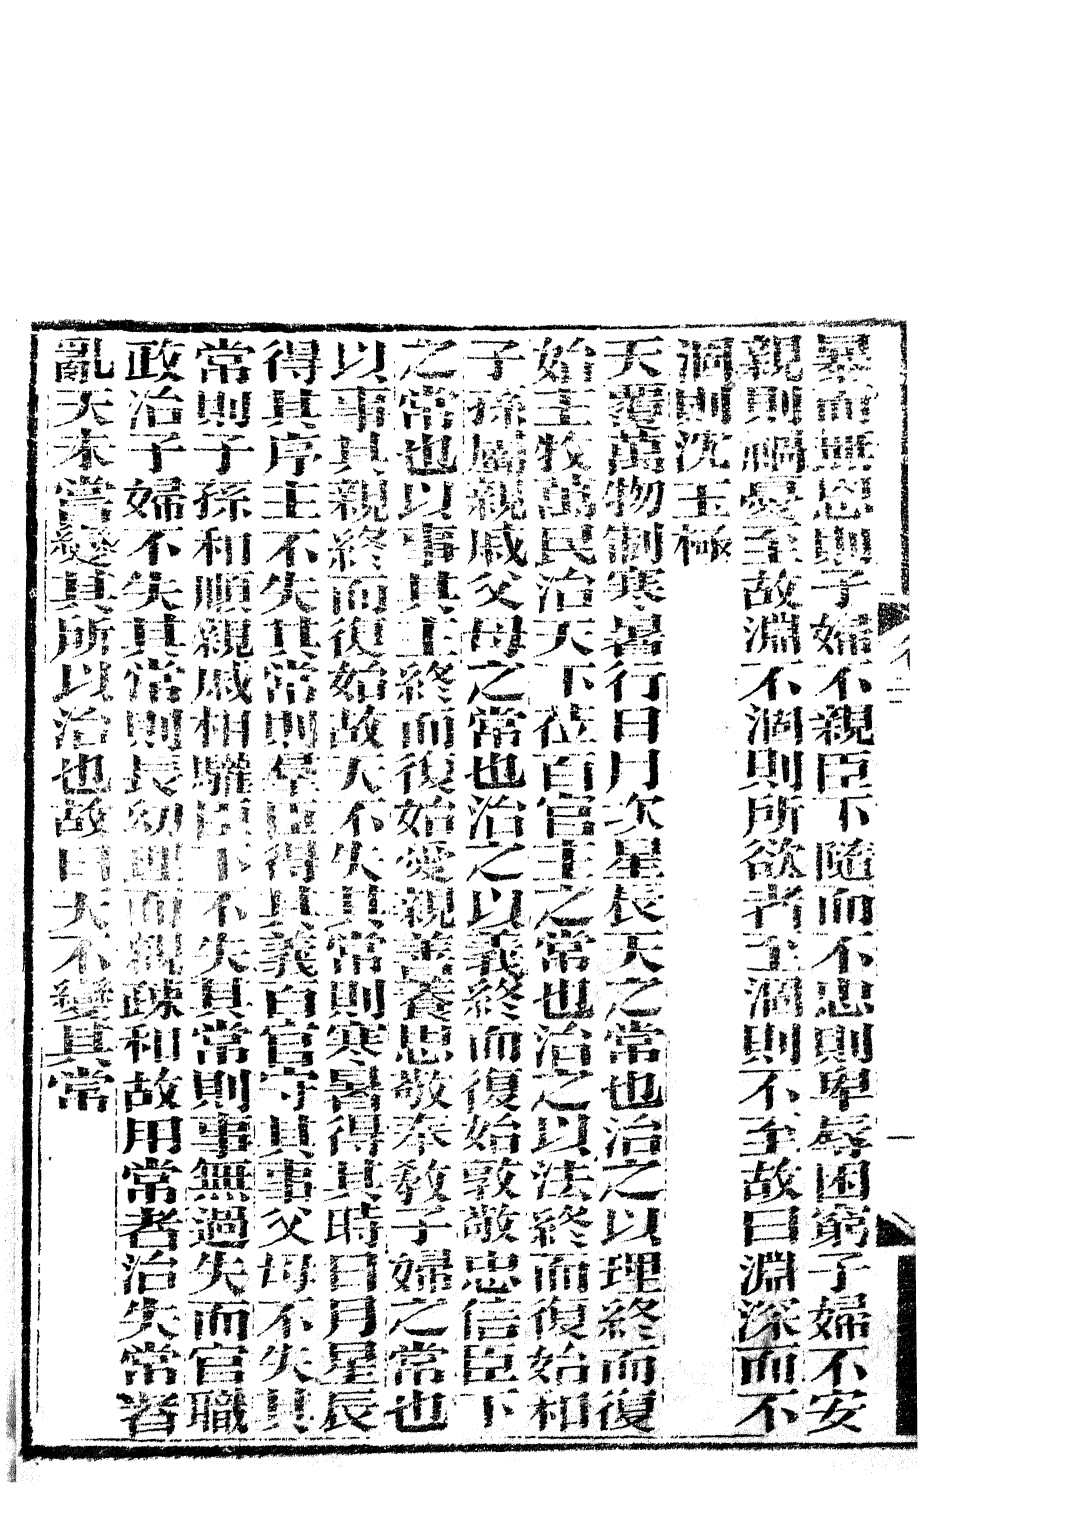 暴而無恩則子婦不親臣下隨而不忠則卑辱困窮子婦不安
親則禍憂至故淵不涸則所欲者至涸則不至故曰淵深而不
涸則沈玉極
天覆萬物制寒暑行日月次星辰天之常也治之以理終而復
始主牧萬民治天下莅百官主之常也治之以法終而復始和
子孫屬親戚父母之常也治之以義終而復始敦敬忠信臣下
之常也以事其主終而復始愛親善養思敬奉敎子婦之常也
以事其親終而復始故天不失其常則寒暑得其時日月星辰
得其序主不失其常則羣臣得其義百官守其事父母不失其
常則子孫和順親戚相驩臣下不失其常則事無過失而官職
政治子婦不失其常則長幼理而親疎和故用常者治失常者
亂天未嘗變其所以治也故曰天不變其常